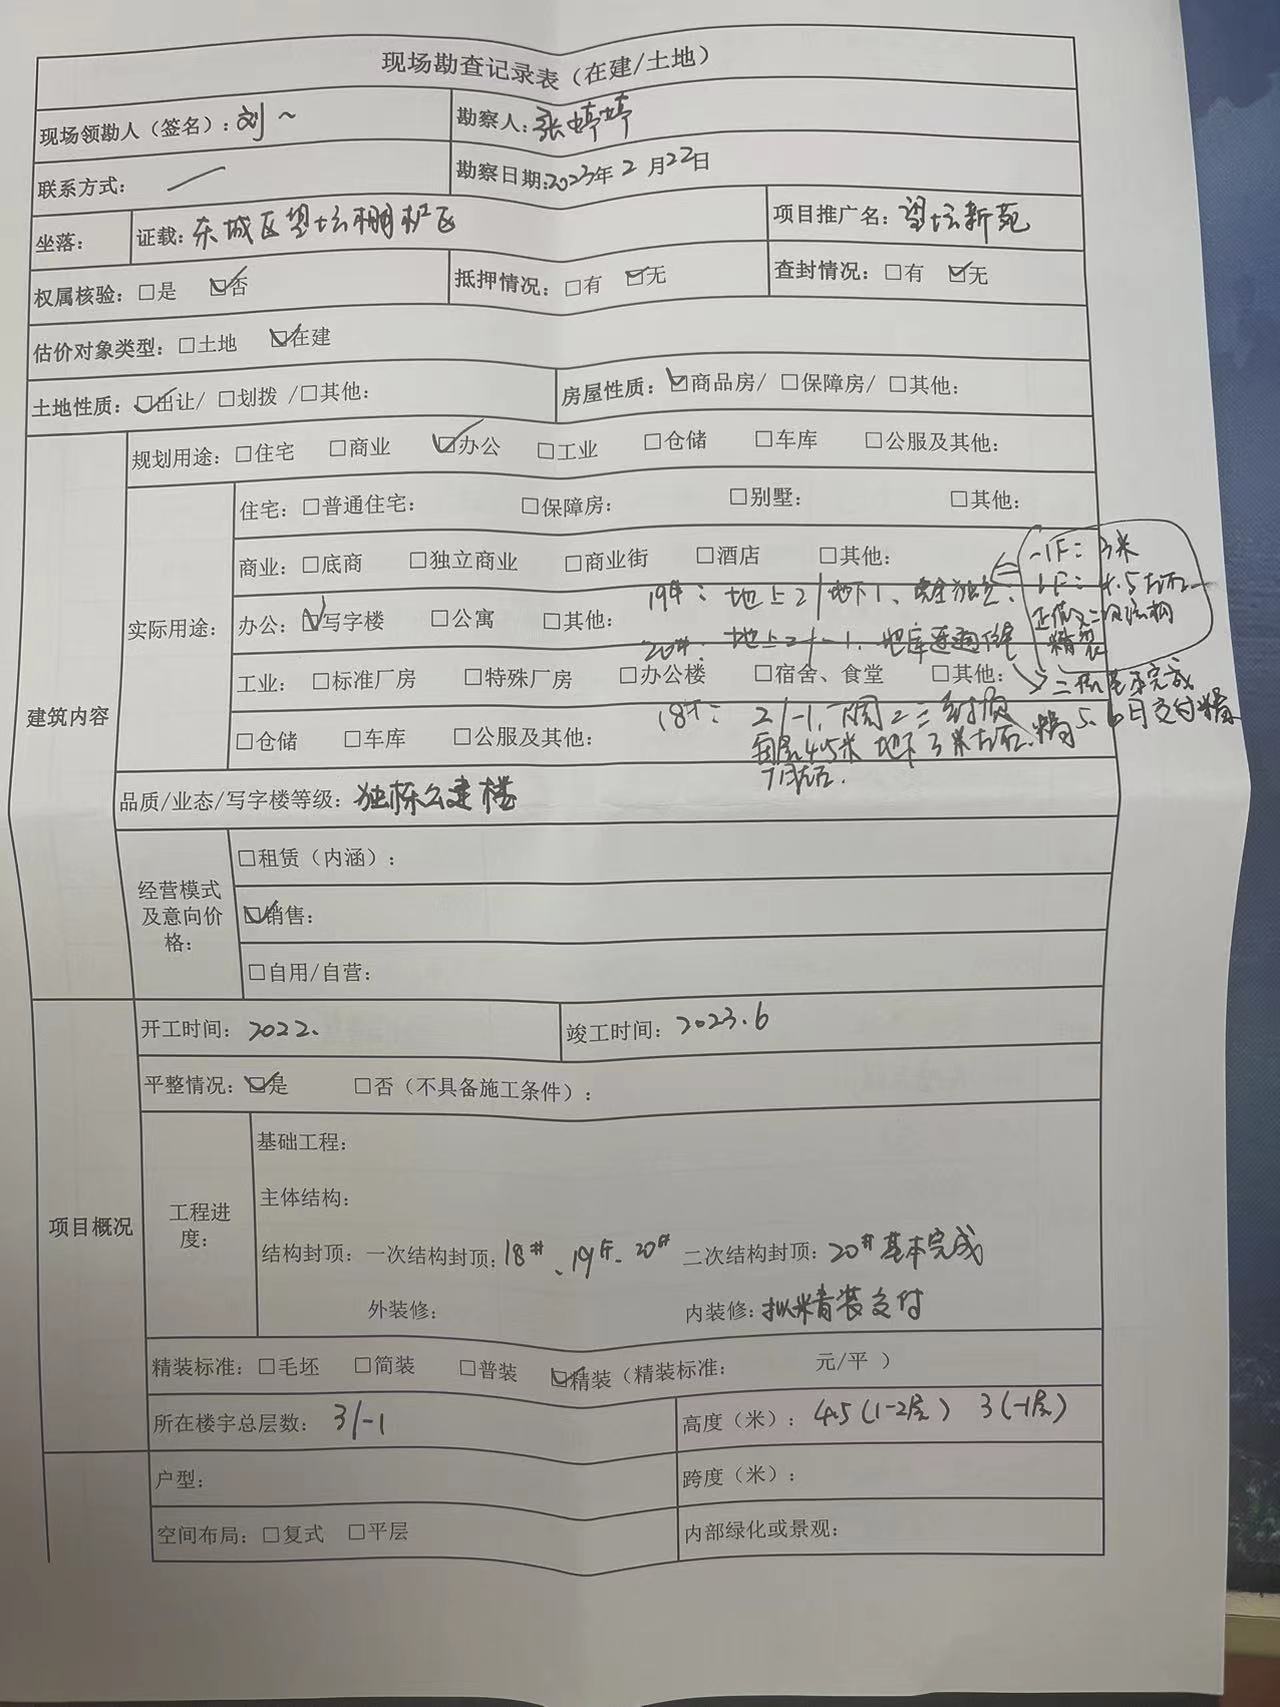 现场勘查记录表（在建/土地）
现场领勘人（签名）：刘~ 勘察人：张婷婷
联系方式： 勘察日期：2023年2月22日
坐落： 证载：东城区望坛棚户区 项目推广名：望坛新苑
权属核验：□是 ☑否 抵押情况：□有 ☑无 查封情况：□有 ☑无
估价对象类型：□土地 ☑在建
土地性质：☑出让/ □划拨 /□其他： 房屋性质：☑商品房/ □保障房/ □其他：
建筑内容
规划用途：□住宅 □商业 ☑办公 □工业 □仓储 □车库 □公服及其他：
实际用途：
住宅：□普通住宅： □保障房： □别墅： □其他：
商业：□底商 □独立商业 □商业街 □酒店 □其他：
-1F：3米
1F：4.5左右
正做二次结构
精装
19#：地上2/地下1、完全独立
办公：☑写字楼 □公寓 □其他：
20#：地上2/-1、地库连通
工业：□标准厂房 □特殊厂房 □办公楼 □宿舍、食堂 □其他：
二次基本完成
5、6月交付精装
18#：2/-1，封顶
□仓储 □车库 □公服及其他：
每层4.5米 地下3米左右
7月左右.
品质/业态/写字楼等级：独栋公建楼
经营模式及意向价格：
□租赁（内涵）：
☑销售：
□自用/自营：
项目概况
开工时间：2022. 竣工时间：2023.6
平整情况：☑是 □否（不具备施工条件）：
工程进度：
基础工程：
主体结构：
结构封顶：一次结构封顶：18#、19#、20# 二次结构封顶：20#基本完成
外装修： 内装修：拟精装交付
精装标准：□毛坯 □简装 □普装 ☑精装（精装标准： 元/平 ）
所在楼宇总层数：3/-1 高度（米）：4.5(1-2层) 3(-1层)
户型： 跨度（米）：
空间布局：□复式 □平层 内部绿化或景观：